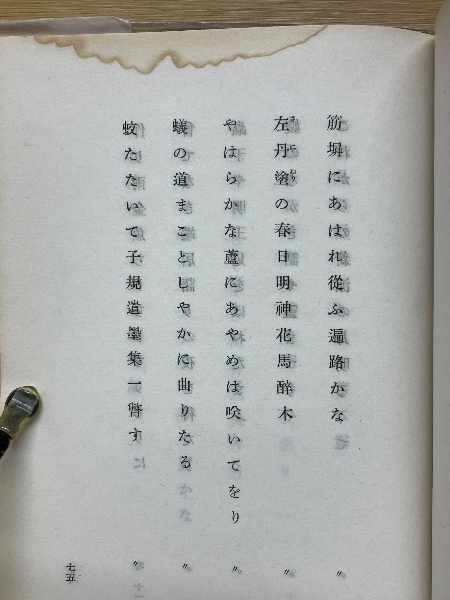 筋塀にあはれ從ふ遍路かな 〃
左丹塗の春日明神花馬醉木 〃
やはらかな蘆にあやめは咲いてをり 〃
蟻の道まことしやかに曲りたる 〃
蚊たたいて子規遺墨集一瞥す 〃
七五